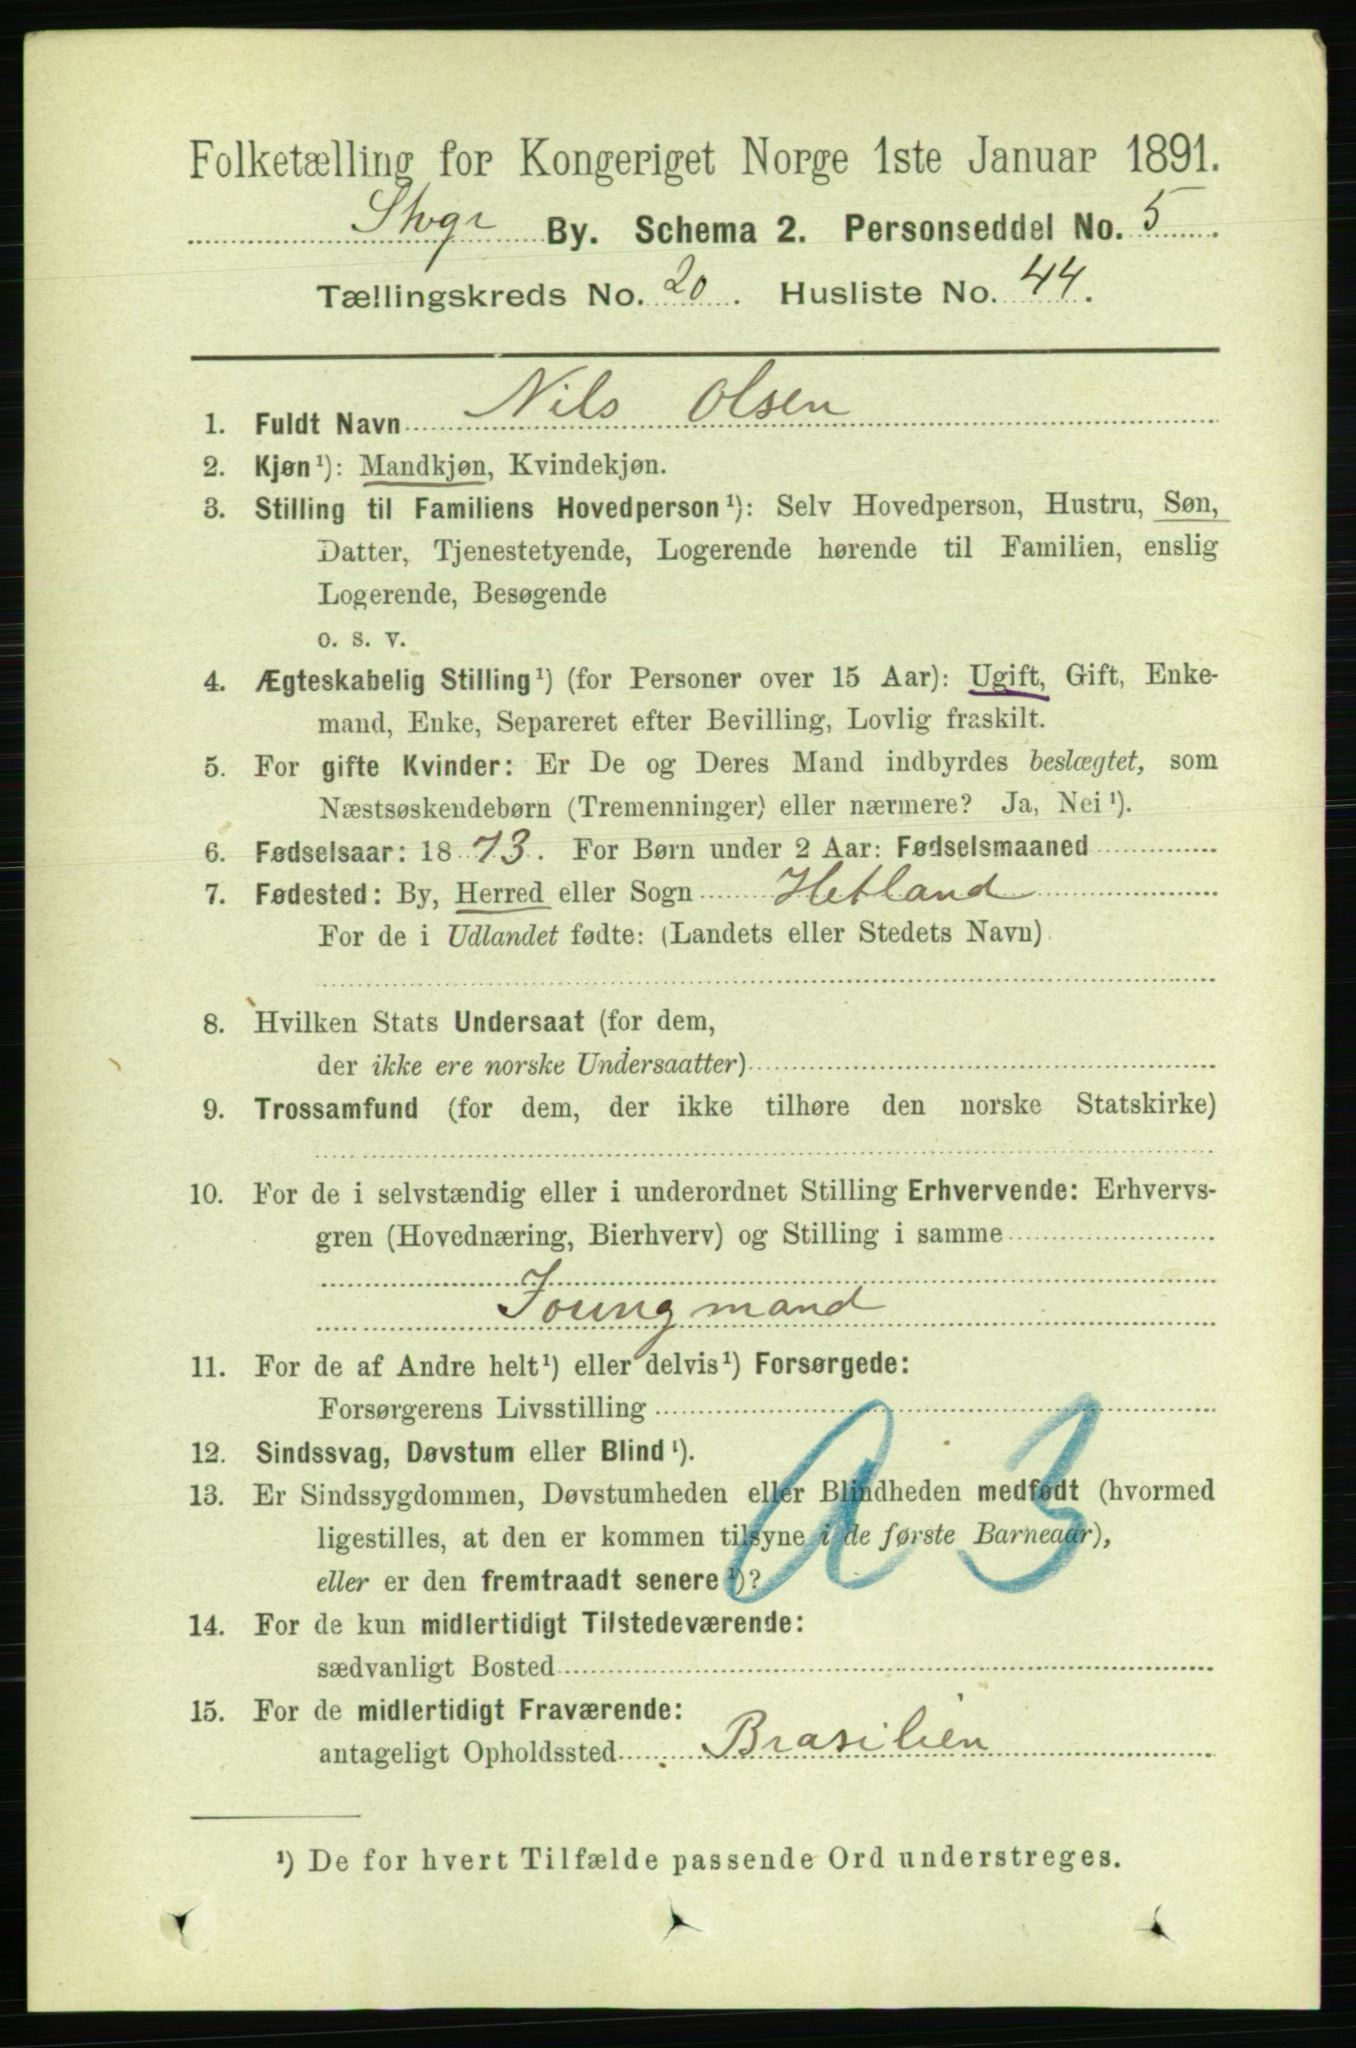 Folketælling for Kongeriget Norge 1ste Januar 1891.
Stvgr By. Schema 2. Personseddel No. 5.
Tællingskreds No. 20. Husliste No. 44.
1. Fuldt Navn Nils Olsen
2. Kjøn¹): Mandkjøn, Kvindekjøn.
3. Stilling til Familiens Hovedperson¹): Selv Hovedperson, Hustru, Søn,
Datter, Tjenestetyende, Logerende hørende til Familien, enslig
Logerende, Besøgende
o. s. v.
4. Ægteskabelig Stilling¹) (for Personer over 15 Aar): Ugift, Gift, Enke-
mand, Enke, Separeret efter Bevilling, Lovlig fraskilt.
5. For gifte Kvinder: Er De og Deres Mand indbyrdes beslægtet, som
Næstsøskendebørn (Tremenninger) eller nærmere? Ja, Nei¹).
6. Fødselsaar: 1873. For Børn under 2 Aar: Fødselsmaaned
7. Fødested: By, Herred eller Sogn Hetland
For de i Udlandet fødte: (Landets eller Stedets Navn)
8. Hvilken Stats Undersaat (for dem,
der ikke ere norske Undersaatter)
9. Trossamfund (for dem, der ikke tilhøre den norske Statskirke)
10. For de i selvstændig eller i underordnet Stilling Erhvervende: Erhvervs-
gren (Hovednæring, Bierhverv) og Stilling i samme
Joungmand
11. For de af Andre helt¹) eller delvis¹) Forsørgede:
Forsørgerens Livsstilling
12. Sindssvag, Døvstum eller Blind¹).
13. Er Sindssygdommen, Døvstumheden eller Blindheden medfødt (hvormed
ligestilles, at den er kommen tilsyne i de første Barneaar),
eller er den fremtraadt senere¹)?
a 3
14. For de kun midlertidigt Tilstedeværende:
sædvanligt Bosted
15. For de midlertidigt Fraværende:
antageligt Opholdssted Brasilien
¹) De for hvert Tilfælde passende Ord understreges.